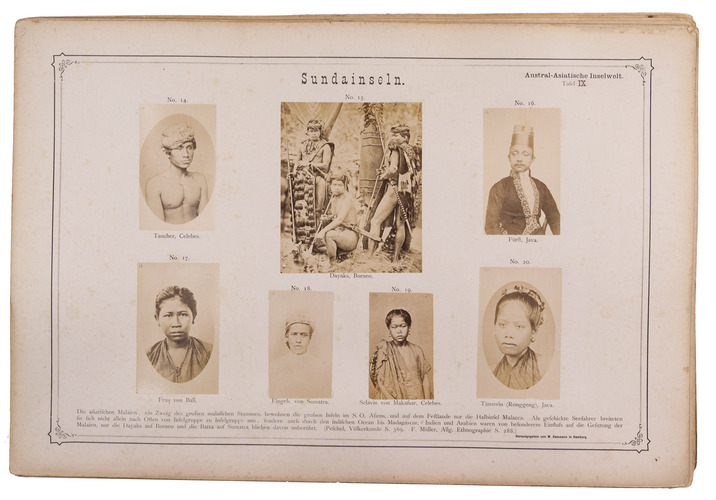 Sundainseln.
Austral-Asiatische Inselwelt.
Tafel IX.
No. 14.
No. 15.
No. 16.
Taucher, Celebes.
Dayaks, Borneo.
Fürst, Java.
No. 17.
No. 18.
No. 19.
No. 20.
Frau von Bali.
Eingeb. von Sumatra.
Sclavin von Makassar, Celebes.
Tänzerin (Ronggeng), Java.
Die asiatischen Malaien, ein Zweig des großen malaiischen Stammes, bewohnen die großen Inseln im S. O. Asiens, und auf dem Festlande nur die Halbinsel Malacca. Als geschickte Seefahrer breiteten
sie sich nicht allein nach Osten von Inselgruppe zu Inselgruppe aus, sondern auch durch den indischen Ocean bis Madagascar. Indien und Arabien waren von besonderem Einfluß auf die Gesittung der
Malaien, nur die Dayaks auf Borneo und die Batta auf Sumatra blieben davon unberührt. (Peschel, Völkerkunde S. 369. F. Müller, Allg. Ethnographie S. 288.)
Herausgegeben von W. Dammann in Hamburg.